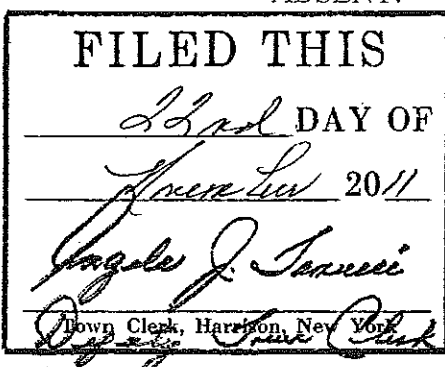 ABSENT:
FILED THIS
22nd DAY OF
November 2011
Angelo J.
Town Clerk, Harrison, New York
Deputy Town Clerk